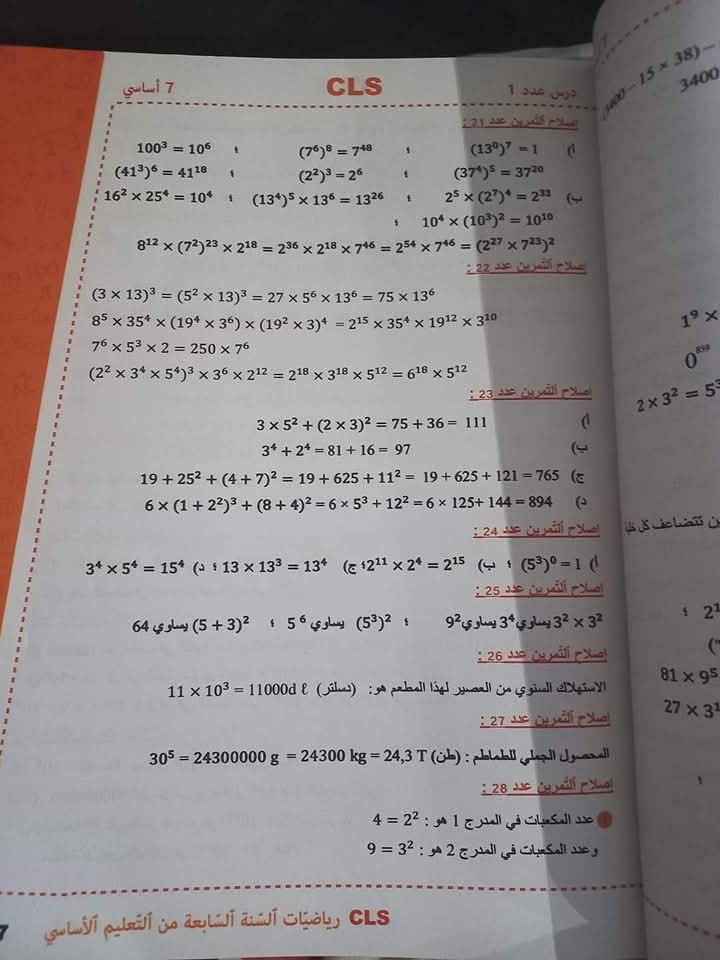 درس عدد 1 CLS 7 أساسي
إصلاح ٱلتمرين عدد 21 :
أ) (13⁰)⁷ = 1 ؛ (7⁶)⁸ = 7⁴⁸ ؛ 100³ = 10⁶
(37⁴)⁵ = 37²⁰ ؛ (2²)³ = 2⁶ ؛ (41³)⁶ = 41¹⁸
ب) 2⁵ × (2⁷)⁴ = 2³³ ؛ (13⁴)⁵ × 13⁶ = 13²⁶ ؛ 16² × 25⁴ = 10⁴
10⁴ × (10³)² = 10¹⁰ ؛
8¹² × (7²)²³ × 2¹⁸ = 2³⁶ × 2¹⁸ × 7⁴⁶ = 2⁵⁴ × 7⁴⁶ = (2²⁷ × 7²³)²
إصلاح ٱلتمرين عدد 22 :
(3 × 13)³ = (5² × 13)³ = 27 × 5⁶ × 13⁶ = 75 × 13⁶
8⁵ × 35⁴ × (19⁴ × 3⁶) × (19² × 3)⁴ = 2¹⁵ × 35⁴ × 19¹² × 3¹⁰
7⁶ × 5³ × 2 = 250 × 7⁶
(2² × 3⁴ × 5⁴)³ × 3⁶ × 2¹² = 2¹⁸ × 3¹⁸ × 5¹² = 6¹⁸ × 5¹²
إصلاح ٱلتمرين عدد 23 :
أ) 3 × 5² + (2 × 3)² = 75 + 36 = 111
ب) 3⁴ + 2⁴ = 81 + 16 = 97
ج) 19 + 25² + (4 + 7)² = 19 + 625 + 11² = 19 + 625 + 121 = 765
د) 6 × (1 + 2²)³ + (8 + 4)² = 6 × 5³ + 12² = 6 × 125+ 144 = 894
إصلاح ٱلتمرين عدد 24 :
أ) (5³)⁰ = 1 ؛ ب) 2¹¹ × 2⁴ = 2¹⁵ ؛ ج) 13 × 13³ = 13⁴ ؛ د) 3⁴ × 5⁴ = 15⁴
إصلاح ٱلتمرين عدد 25 :
3² × 3² يساوي 3⁴ يساوي 9² ؛ (5³)² يساوي 5⁶ ؛ (5 + 3)² يساوي 64
إصلاح ٱلتمرين عدد 26 :
الاستهلاك السنوي من العصير لهذا المطعم هو: (دسلتر) 11 × 10³ = 11000d ℓ
إصلاح ٱلتمرين عدد 27 :
المحصول الجملي للطماطم : (طن) 30⁵ = 24300000 g = 24300 kg = 24,3 T
إصلاح ٱلتمرين عدد 28 :
عدد المكعبات في المدرج 1 هو : 4 = 2²
وعدد المكعبات في المدرج 2 هو : 9 = 3²
CLS رياضيّات ٱلسّنة ٱلسّابعة من ٱلتّعليم ٱلأساسي
7
(3400 − 15 × 38) −
3400
1⁹ ×
0⁸⁵⁹
2 × 3² = 5³
تتضاعف كل
؛ 2¹
81 × 9⁵
27 × 3¹